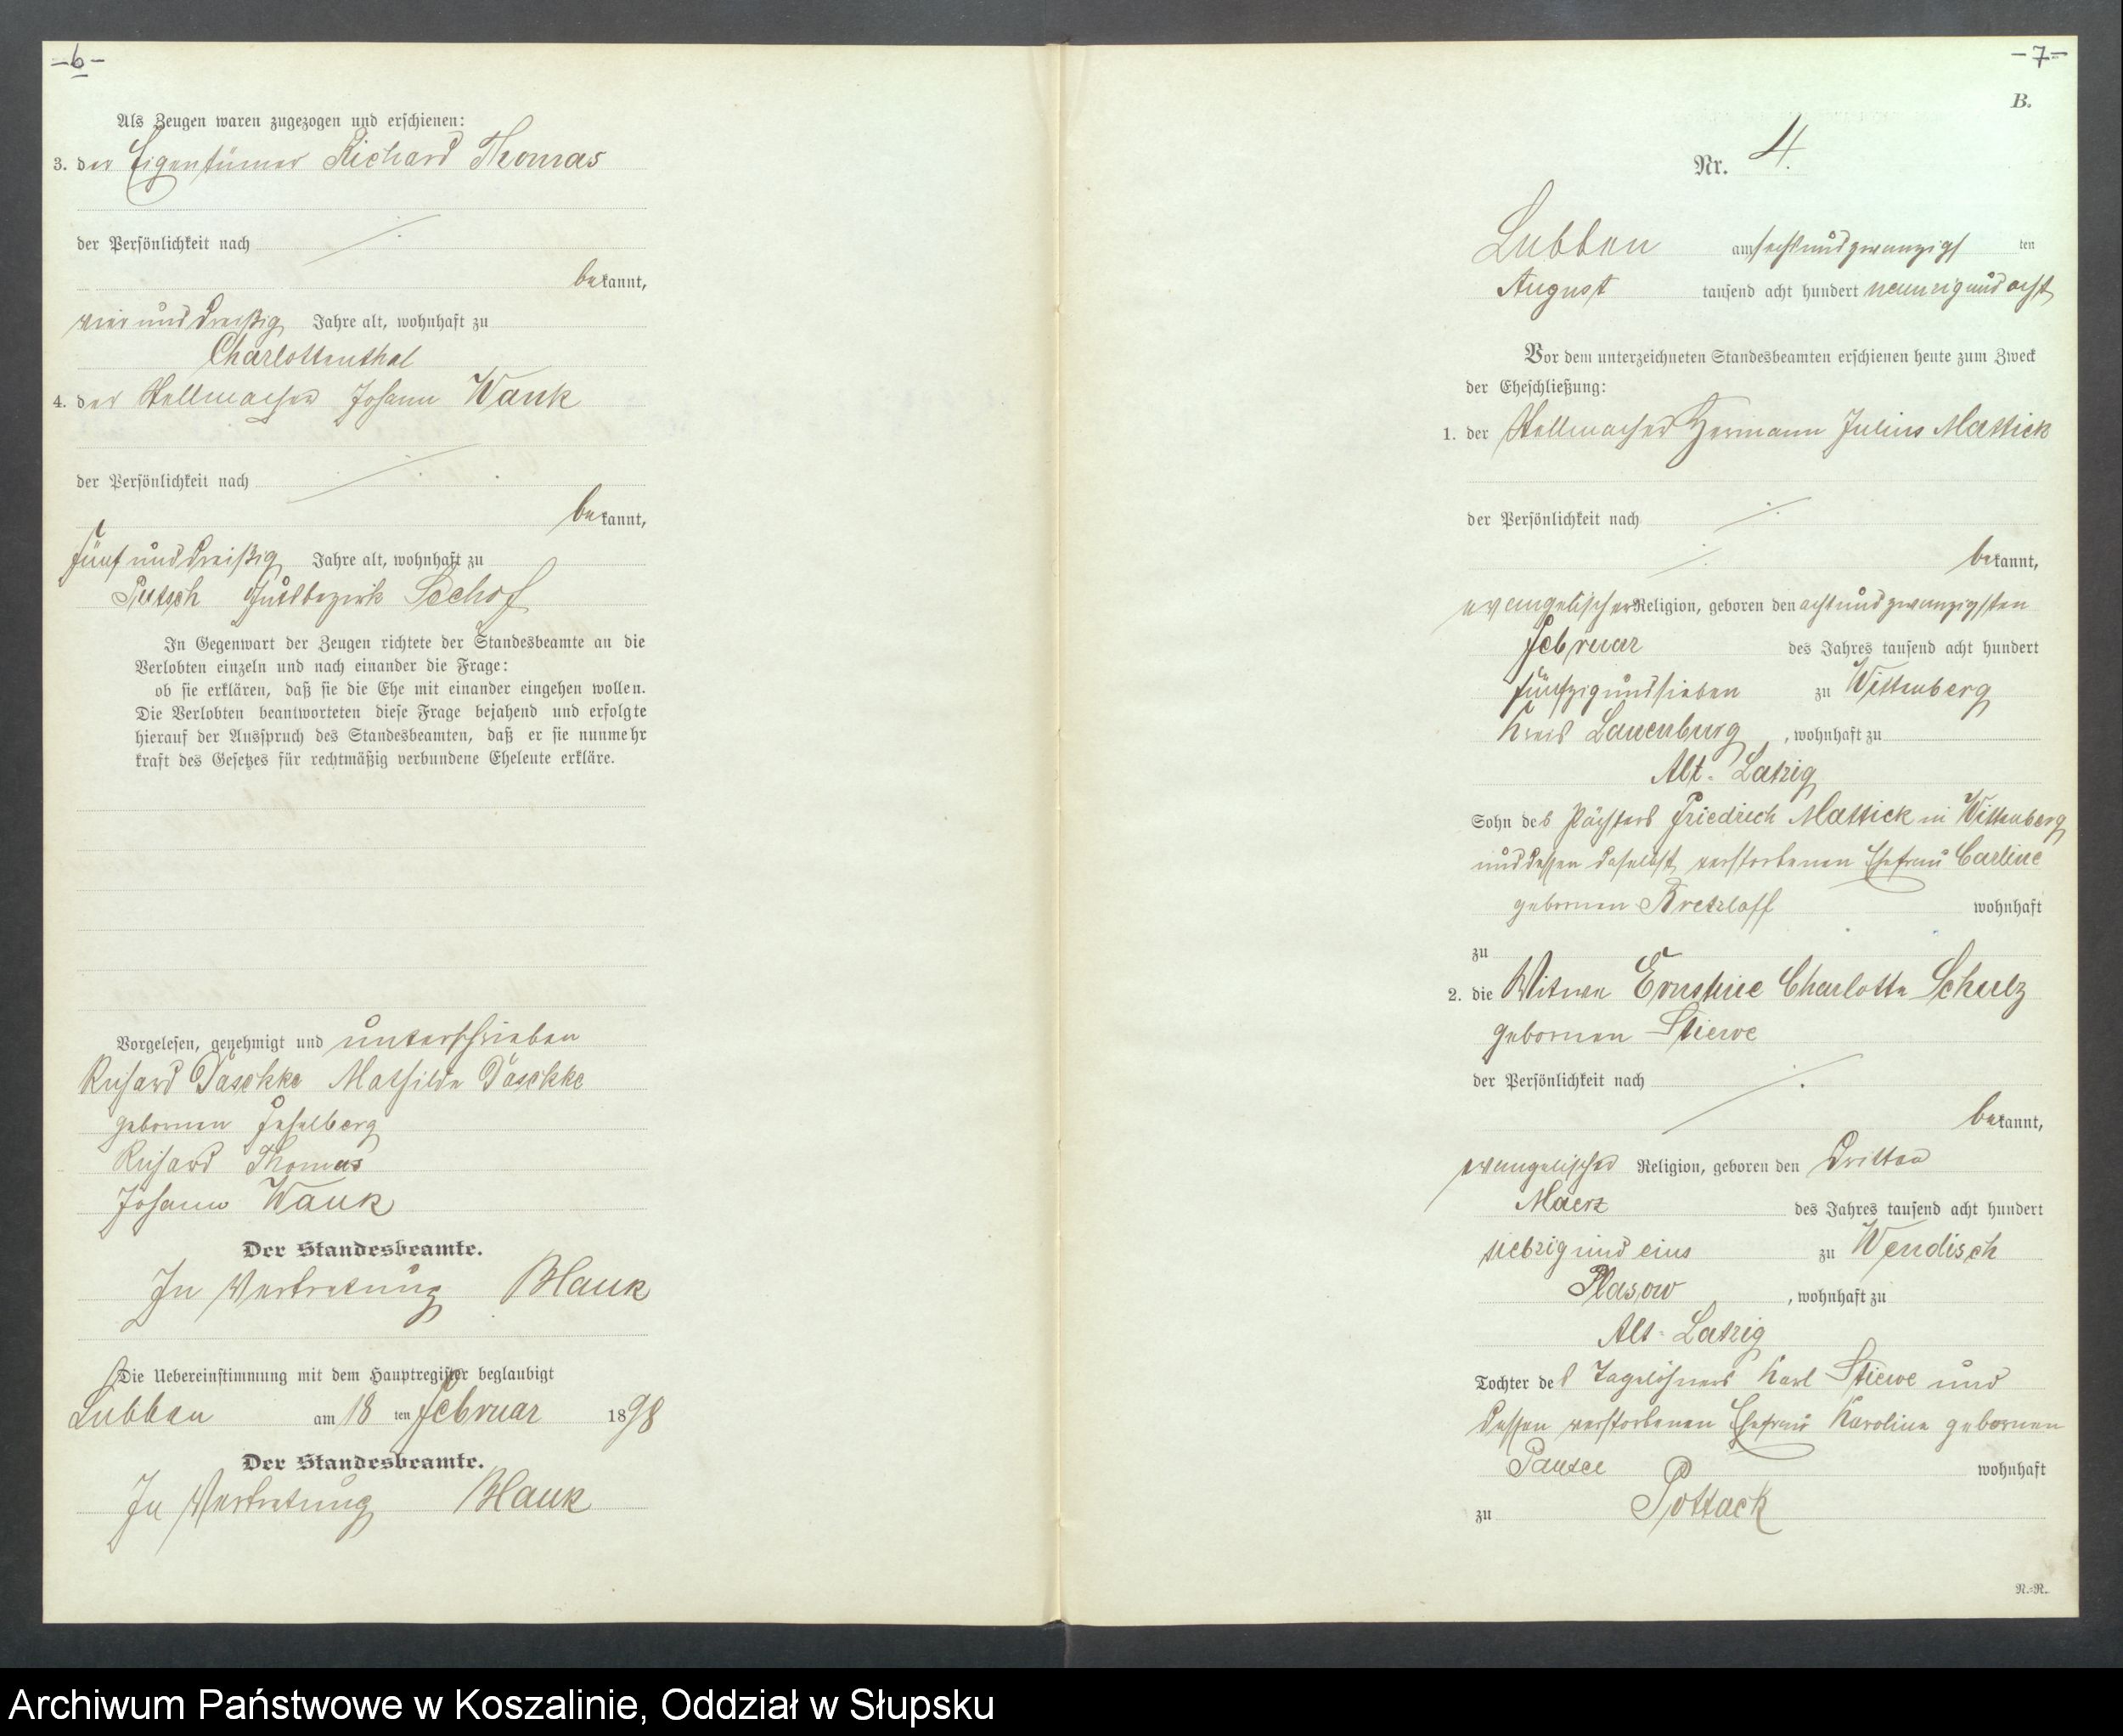 -6-
Als Zeugen waren zugezogen und erschienen:
3. der Eigentümer Richard Thomas
der Persönlichkeit nach
bekannt,
vier und dreißig Jahre alt, wohnhaft zu
Charlottenthal
4. der Stellmacher Johann Wauk
der Persönlichkeit nach
bekannt,
fünf und dreißig Jahre alt, wohnhaft zu
Gutsbezirk Seehof
In Gegenwart der Zeugen richtete der Standesbeamte an die
Verlobten einzeln und nach einander die Frage:
ob sie erklären, daß sie die Ehe mit einander eingehen wollen.
Die Verlobten beantworteten diese Frage bejahend und erfolgte
hierauf der Ausspruch des Standesbeamten, daß er sie nunmehr
kraft des Gesetzes für rechtmäßig verbundene Eheleute erkläre.
Vorgelesen, genehmigt und unterschrieben
Richard Däschke Mathilde Däschke
geborenen
Richard Thomas
Johann Wauk
Der Standesbeamte.
In Vertretung Blauk
Die Uebereinstimmung mit dem Hauptregister beglaubigt
Lübben am 18 ten Februar 1898
Der Standesbeamte.
In Vertretung Blauk
-7-
B.
Nr. 4.
Lubben am sechsundzwanzigs ten
August tausend acht hundert neunzig und acht
Vor dem unterzeichneten Standesbeamten erschienen heute zum Zweck
der Eheschließung:
1. der Stellmacher Hermann Julius Mattick
der Persönlichkeit nach
bekannt,
evangelischer Religion, geboren den acht und zwanzigsten
Februar des Jahres tausend acht hundert
fünfzig und sieben zu Wittenberg
Kreis Lauenburg, wohnhaft zu
Alt-Latzig
Sohn des Pächters Friedrich Mattick in Wittenberg
und dessen daselbst verstorbenen Ehefrau Carline
gebornen Bretzlaff wohnhaft
zu
2. die Witwe Ernstine Charlotte Schulz
gebornen Stiewe
der Persönlichkeit nach
bekannt,
evangelischer Religion, geboren den dritten
Maerz des Jahres tausend acht hundert
siebzig und eins zu Wendisch
Plasow, wohnhaft zu
Alt-Latzig
Tochter des Tagelöhners Karl Stiewe und
dessen verstorbenen Ehefrau Karoline gebornen
wohnhaft
zu Pottack
N.=R.
Archiwum Państwowe w Koszalinie, Oddział w Słupsku